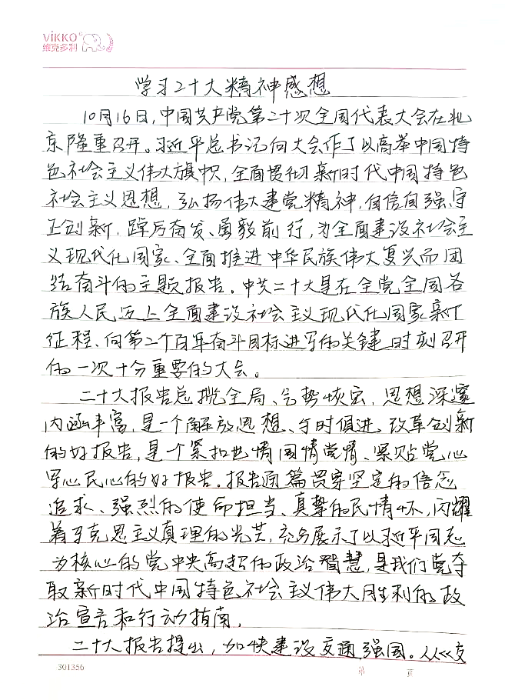 ViKKO
维克多利
学习二十大精神感想
10月16日,中国共产党第二十次全国代表大会在北
京隆重召开。习近平总书记向大会作了以高举中国特
色社会主义伟大旗帜,全面贯彻新时代中国特色
社会主义思想,弘扬伟大建党精神,自信自强、守
正创新,踔厉奋发、勇毅前行,为全面建设社会主
义现代化国家、全面推进中华民族伟大复兴而团
结奋斗的主题报告。中共二十大是在全党全国各
族人民迈上全面建设社会主义现代化国家新
征程、向第二个百年奋斗目标进军的关键时刻召开
的一次十分重要的大会。
二十大报告总揽全局、气势恢宏,思想深邃
内涵丰富,是一个解放思想、与时俱进、改革创新
的好报告,是一个紧扣世情国情党情、紧贴党心
军心民心的好报告。报告通篇贯穿坚定的信念
追求、强烈的使命担当、真挚的民情怀,闪耀
着马克思主义真理的光芒,充分展示了以习近平同志
为核心的党中央高超的政治智慧,是我们党夺
取新时代中国特色社会主义伟大胜利的政
治宣言和行动指南。
二十大报告提出,加快建设交通强国。从"交
301356
第 页